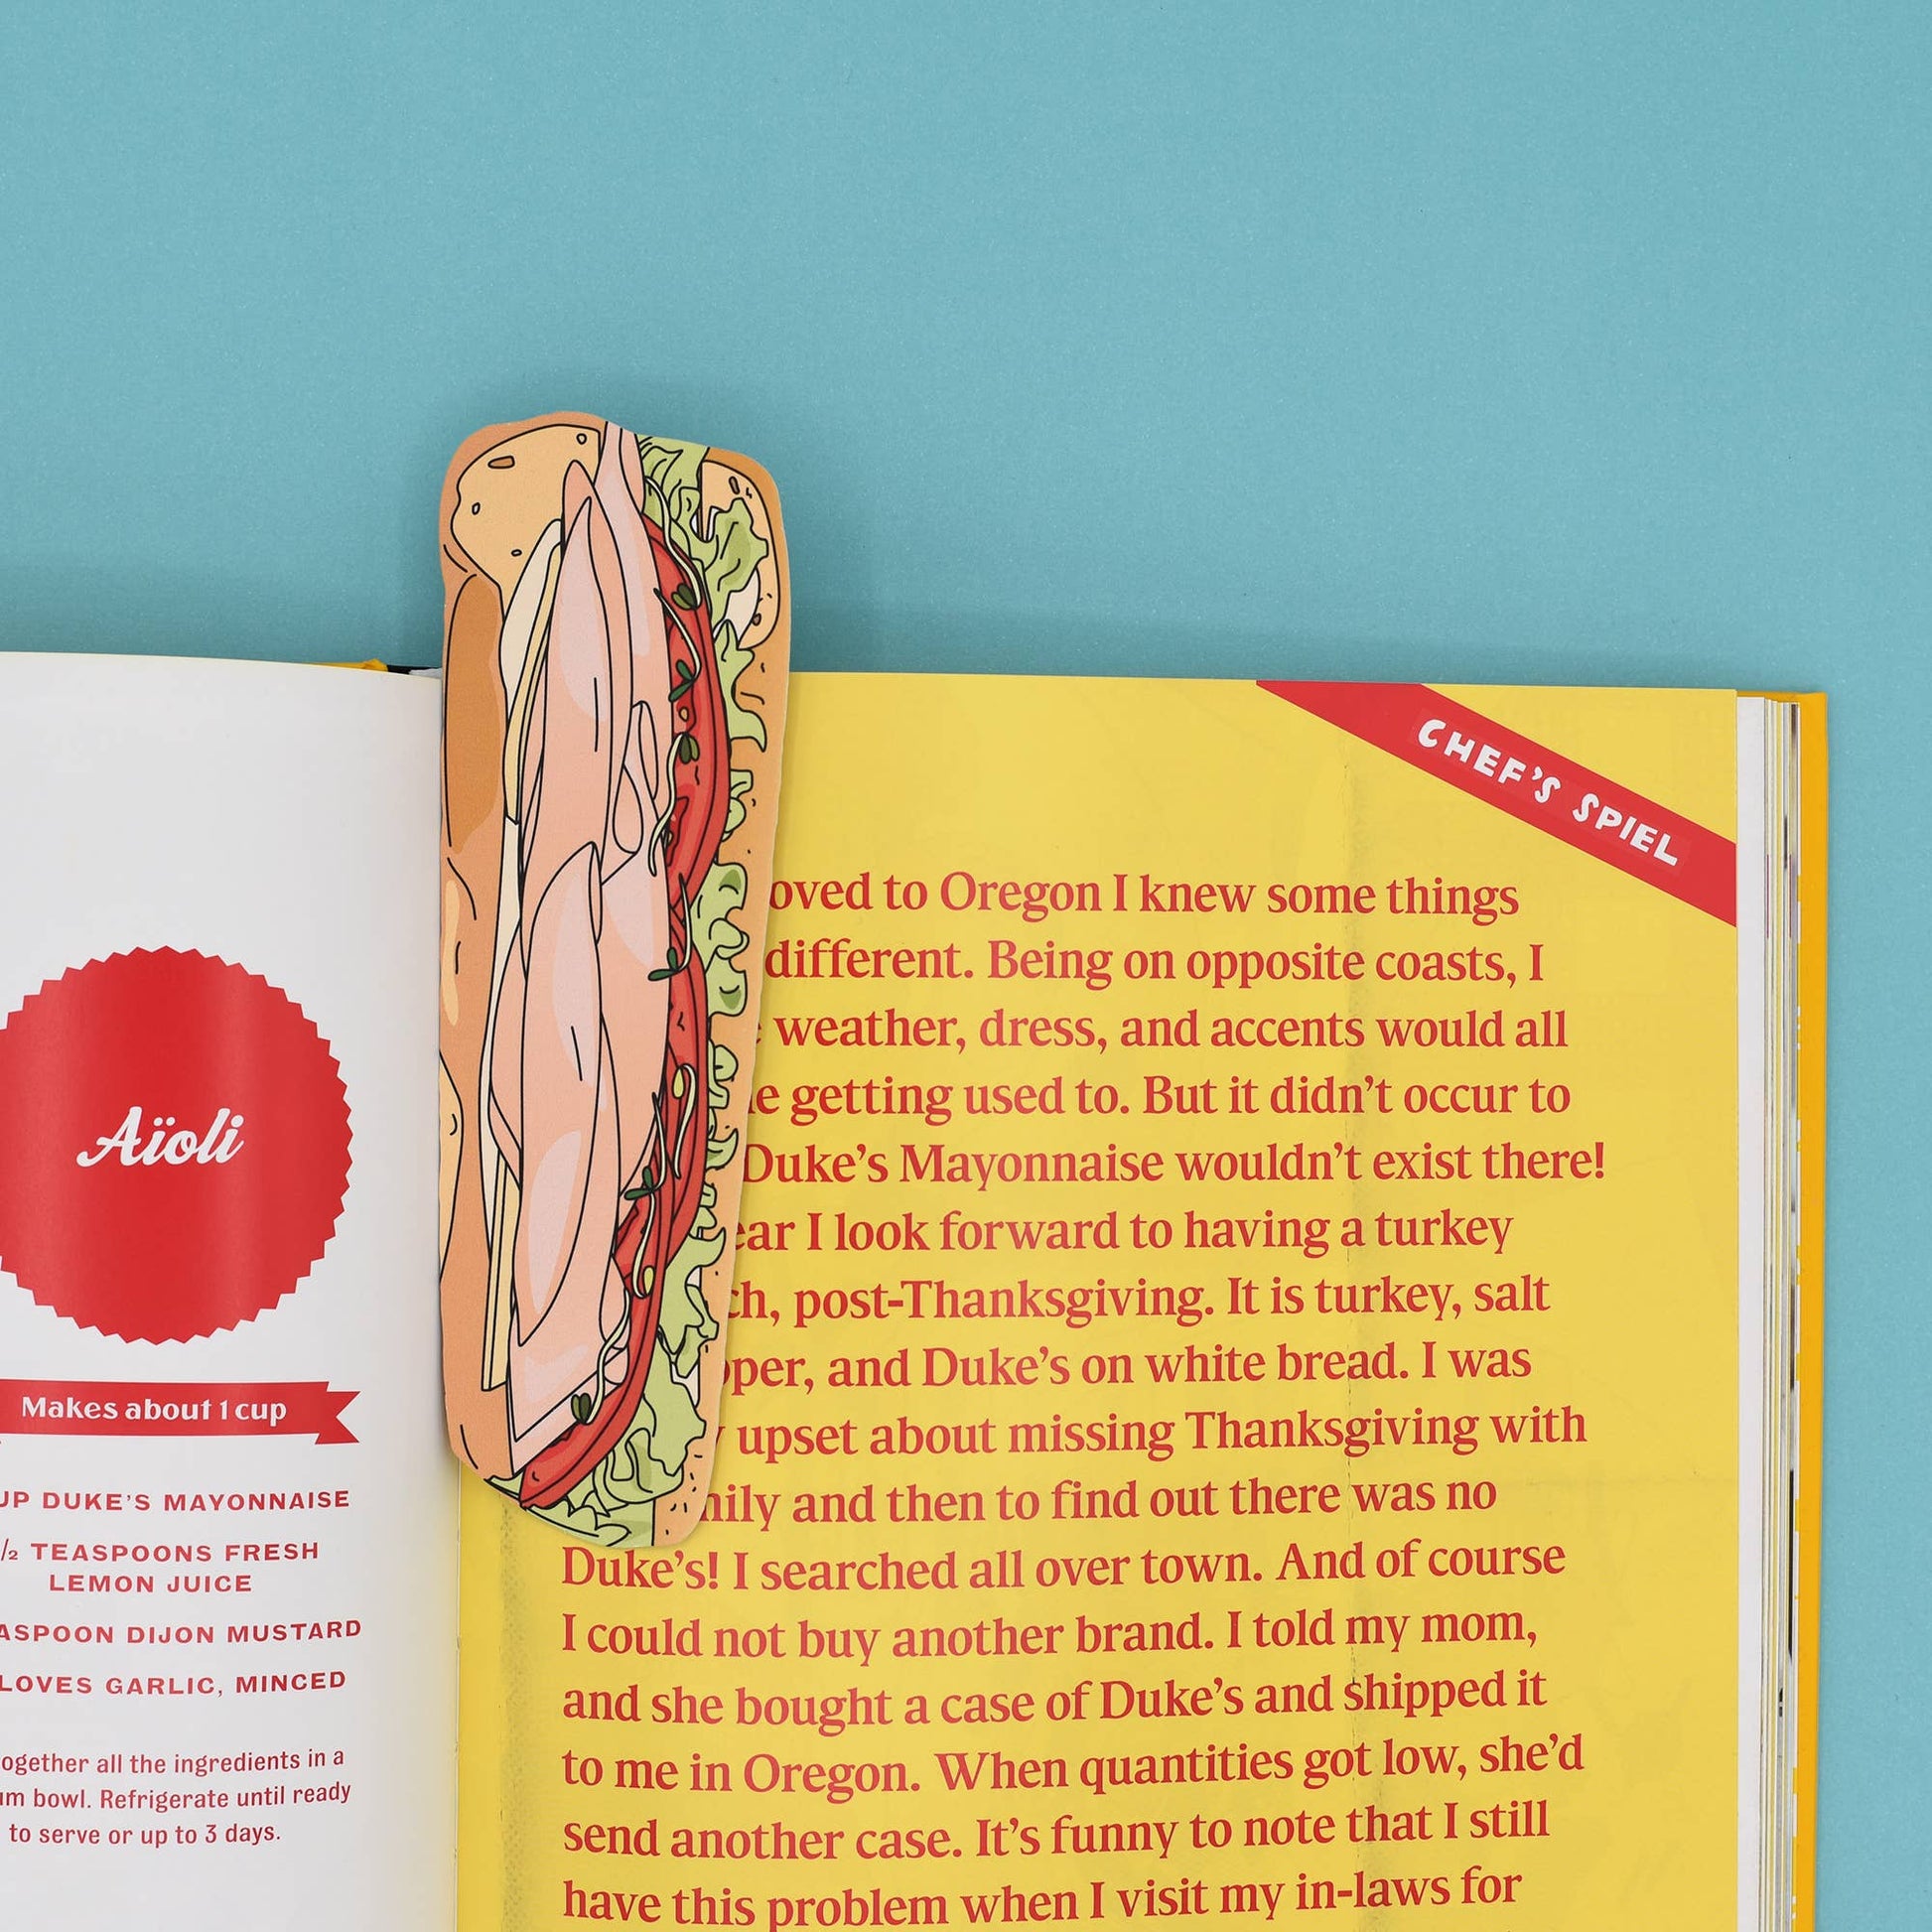 Aïoli
Makes about 1 cup
UP DUKE'S MAYONNAISE
/2 TEASPOONS FRESH
LEMON JUICE
ASPOON DIJON MUSTARD
LOVES GARLIC, MINCED
ogether all the ingredients in a
um bowl. Refrigerate until ready
to serve or up to 3 days.
CHEF'S SPIEL
oved to Oregon I knew some things
different. Being on opposite coasts, I
weather, dress, and accents would all
e getting used to. But it didn't occur to
Duke's Mayonnaise wouldn't exist there!
ear I look forward to having a turkey
ch, post-Thanksgiving. It is turkey, salt
pper, and Duke's on white bread. I was
y upset about missing Thanksgiving with
mily and then to find out there was no
Duke's! I searched all over town. And of course
I could not buy another brand. I told my mom,
and she bought a case of Duke's and shipped it
to me in Oregon. When quantities got low, she'd
send another case. It's funny to note that I still
have this problem when I visit my in-laws for